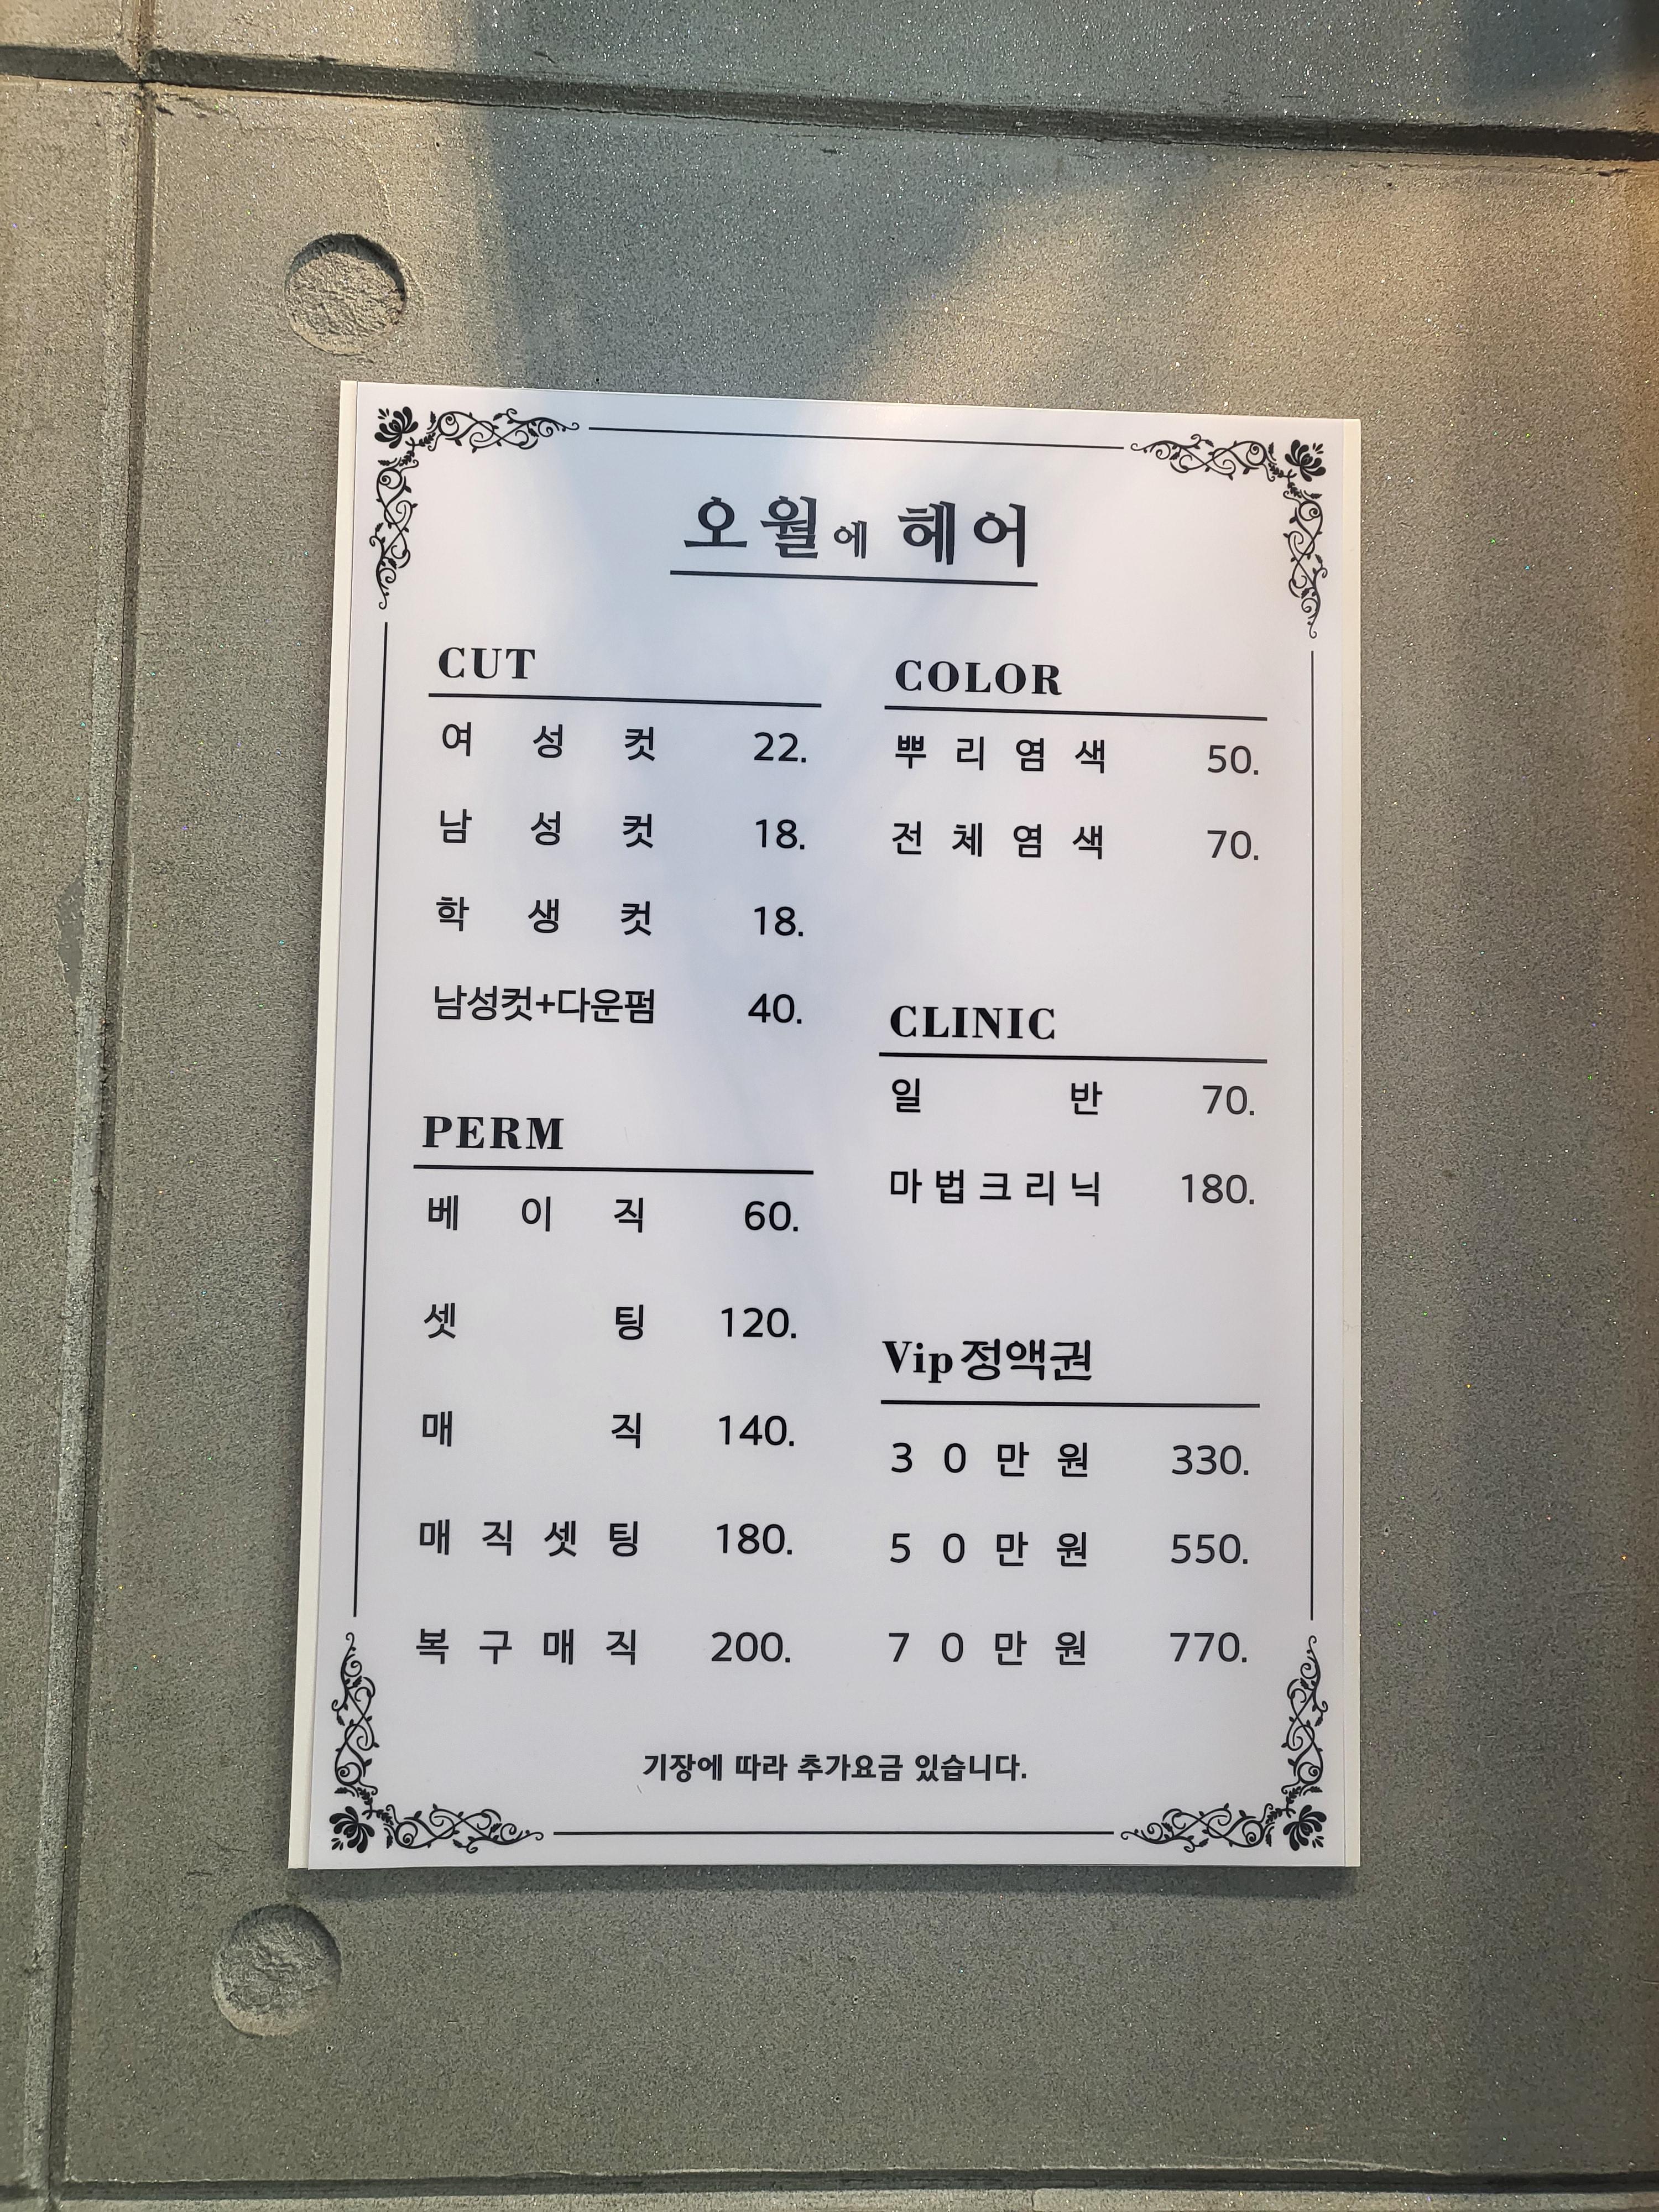 오월에 헤어
CUT
여성컷 22.
남성컷 18.
학생컷 18.
남성컷+다운펌 40.
PERM
베이직 60.
셋팅 120.
매직 140.
매직셋팅 180.
복구매직 200.
COLOR
뿌리염색 50.
전체염색 70.
CLINIC
일반 70.
마법크리닉 180.
Vip정액권
30만원 330.
50만원 550.
70만원 770.
기장에 따라 추가요금 있습니다.